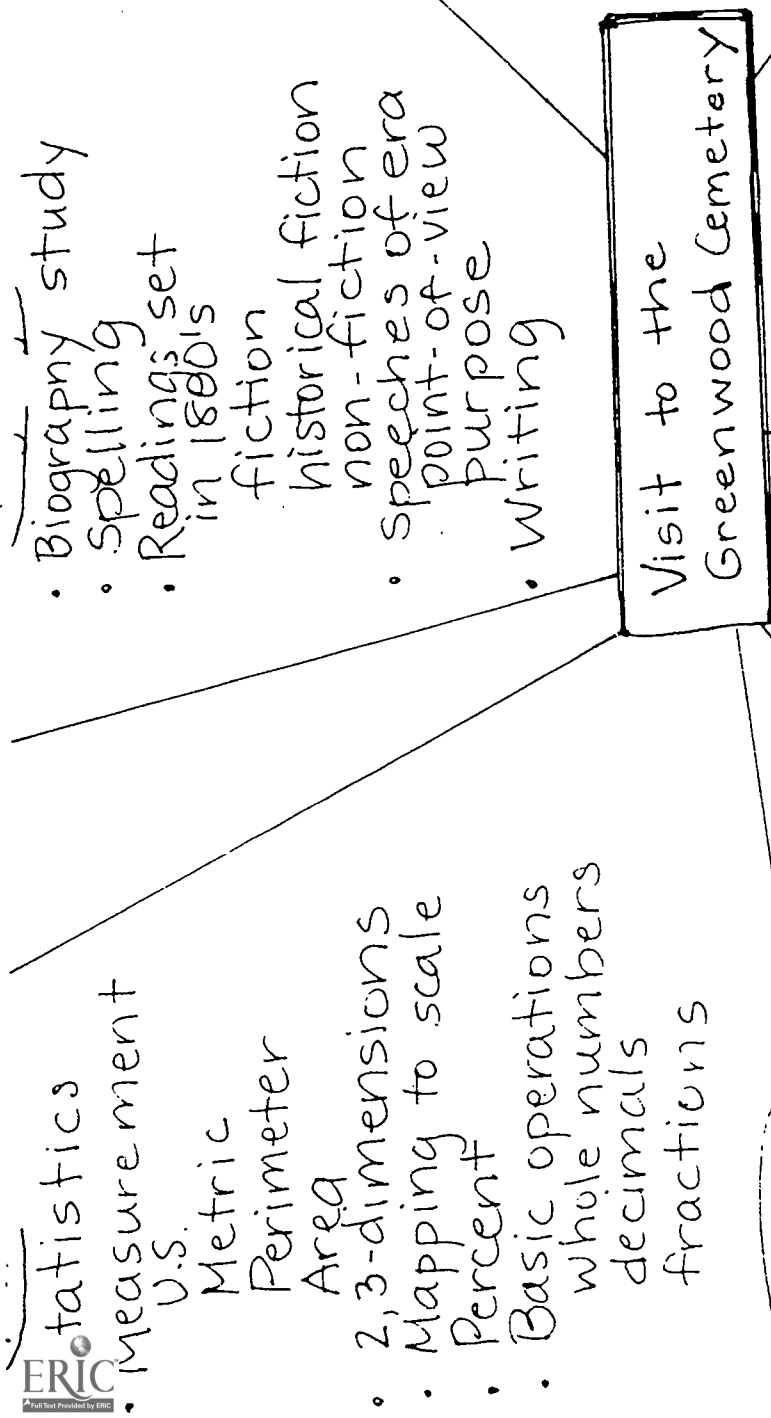 tatistics
• Measurement
U.S.
Metric
Perimeter
Area
• 2,3-dimensions
• Mapping to scale
• Percent
• Basic operations
whole numbers
decimals
fractions
• Biography study
• Spelling
• Readings set
in 1800's
fiction
historical fiction
non-fiction
• speeches of era
point-of-view
purpose
• Writing
Visit to the
Greenwood Cemetery
ERIC
Full Text Provided by ERIC